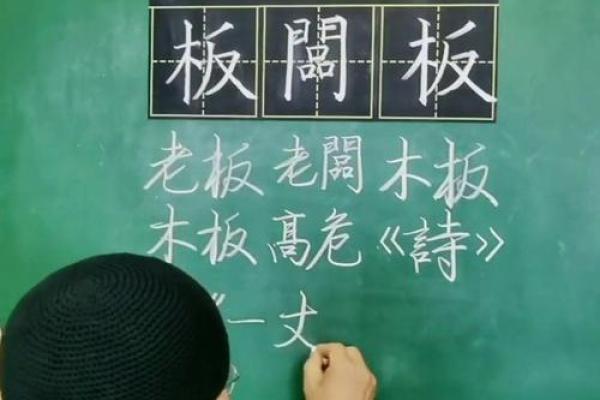 板闆板
老板老闆木板
木板高危《詩》
《一丈